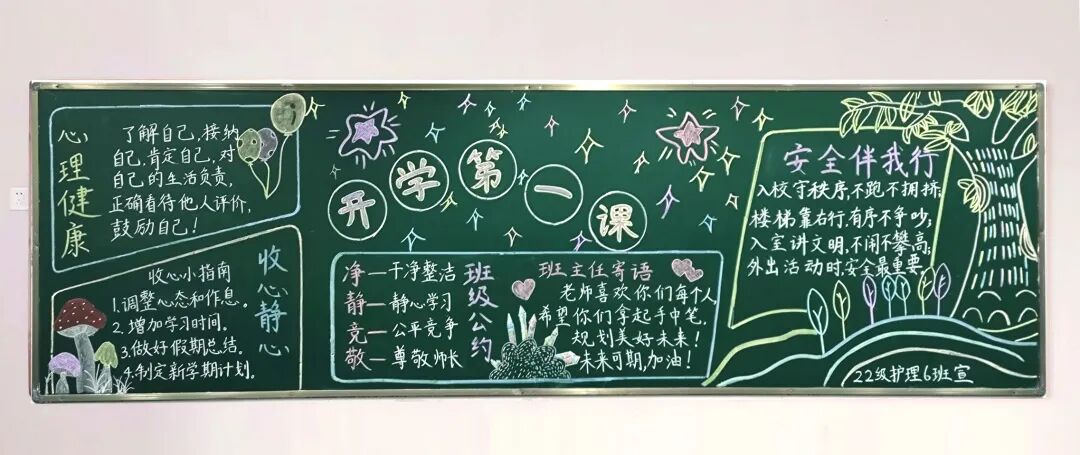 开学第一课
心理健康
了解自己,接纳
自己,肯定自己,对
自己的生活负责,
正确看待他人评价,
鼓励自己!
收心静心
收心小指南
1.调整心态和作息。
2.增加学习时间。
3.做好假期总结。
4.制定新学期计划。
班级公约
净—干净整洁
静—静心学习
竞—公平竞争
敬—尊敬师长
班主任寄语
老师喜欢你们每个人,
希望你们拿起手中笔,
规划美好未来!
未来可期,加油!
安全伴我行
入校守秩序,不跑不拥挤;
楼梯靠右行,有序不争吵;
入室讲文明,不闹不攀高;
外出活动时,安全最重要。
22级护理6班宣